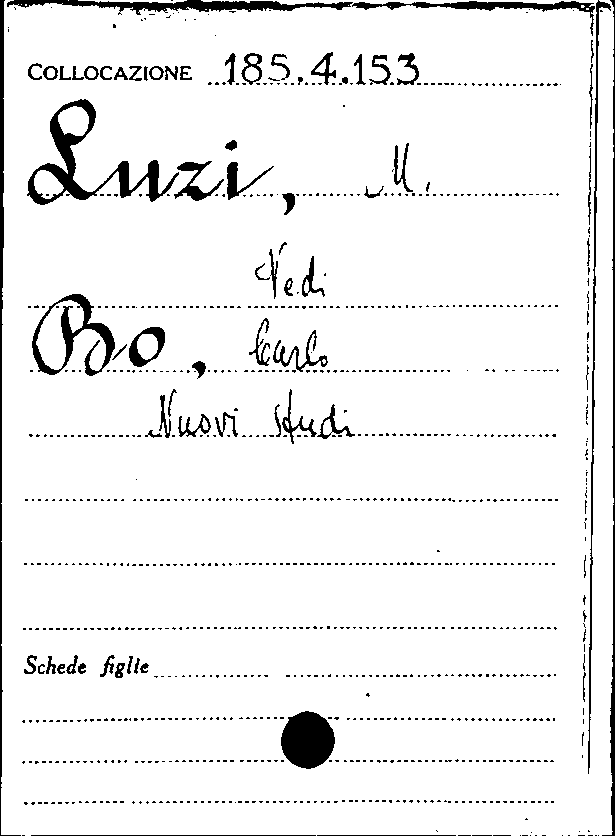 COLLOCAZIONE 185.4.153
Luzi, M.
Vedi
Bo, Carlo
Nuovi studi
Schede figlie